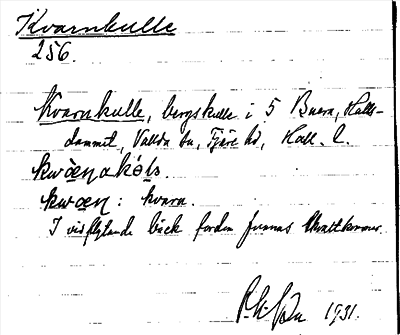 Kvarnkulle
256.
Kvarnkulle, bergskulle i 5 Buera, Halls-
dammet, Vallda sn, Fjäre hd, Hall. l.
kwæṇakóls.
kwæṇ: kvarn.
I vidflytande bäck fordom funnos skvaltkvarnar.
1931.